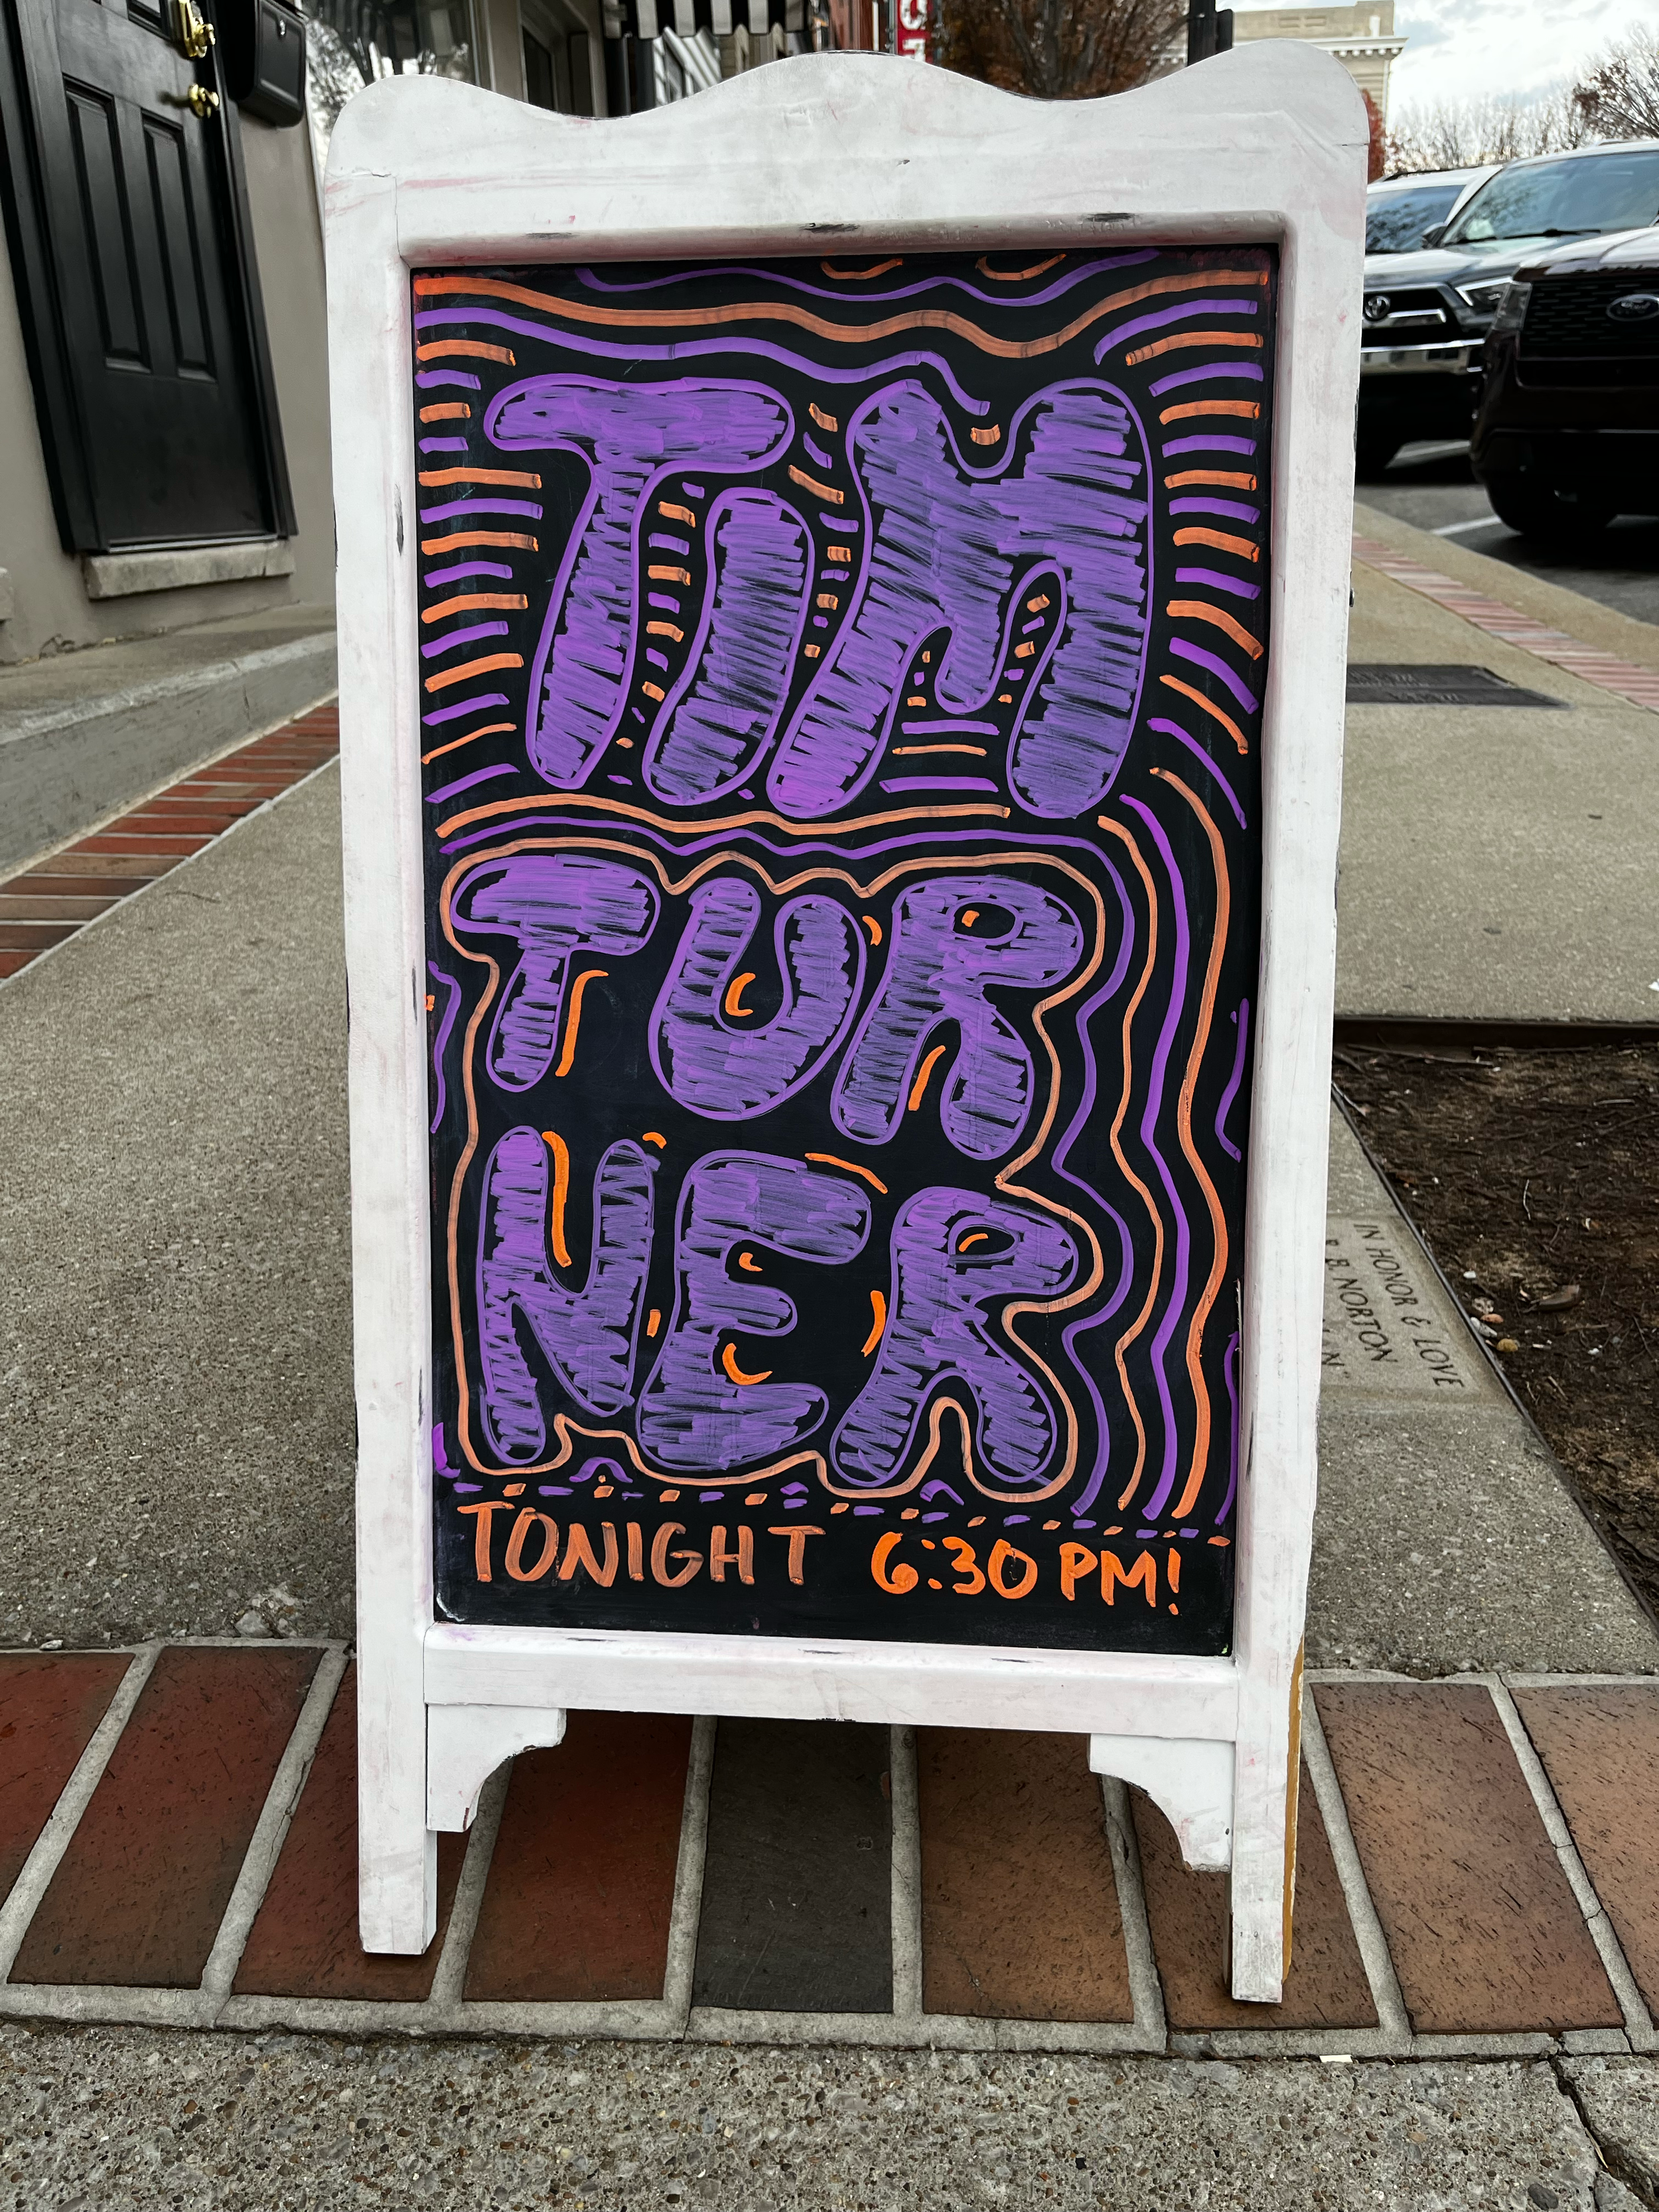 TIM
TUR
NER
TONIGHT 6:30 PM!
IN HONOR & LOVE
B NORTON